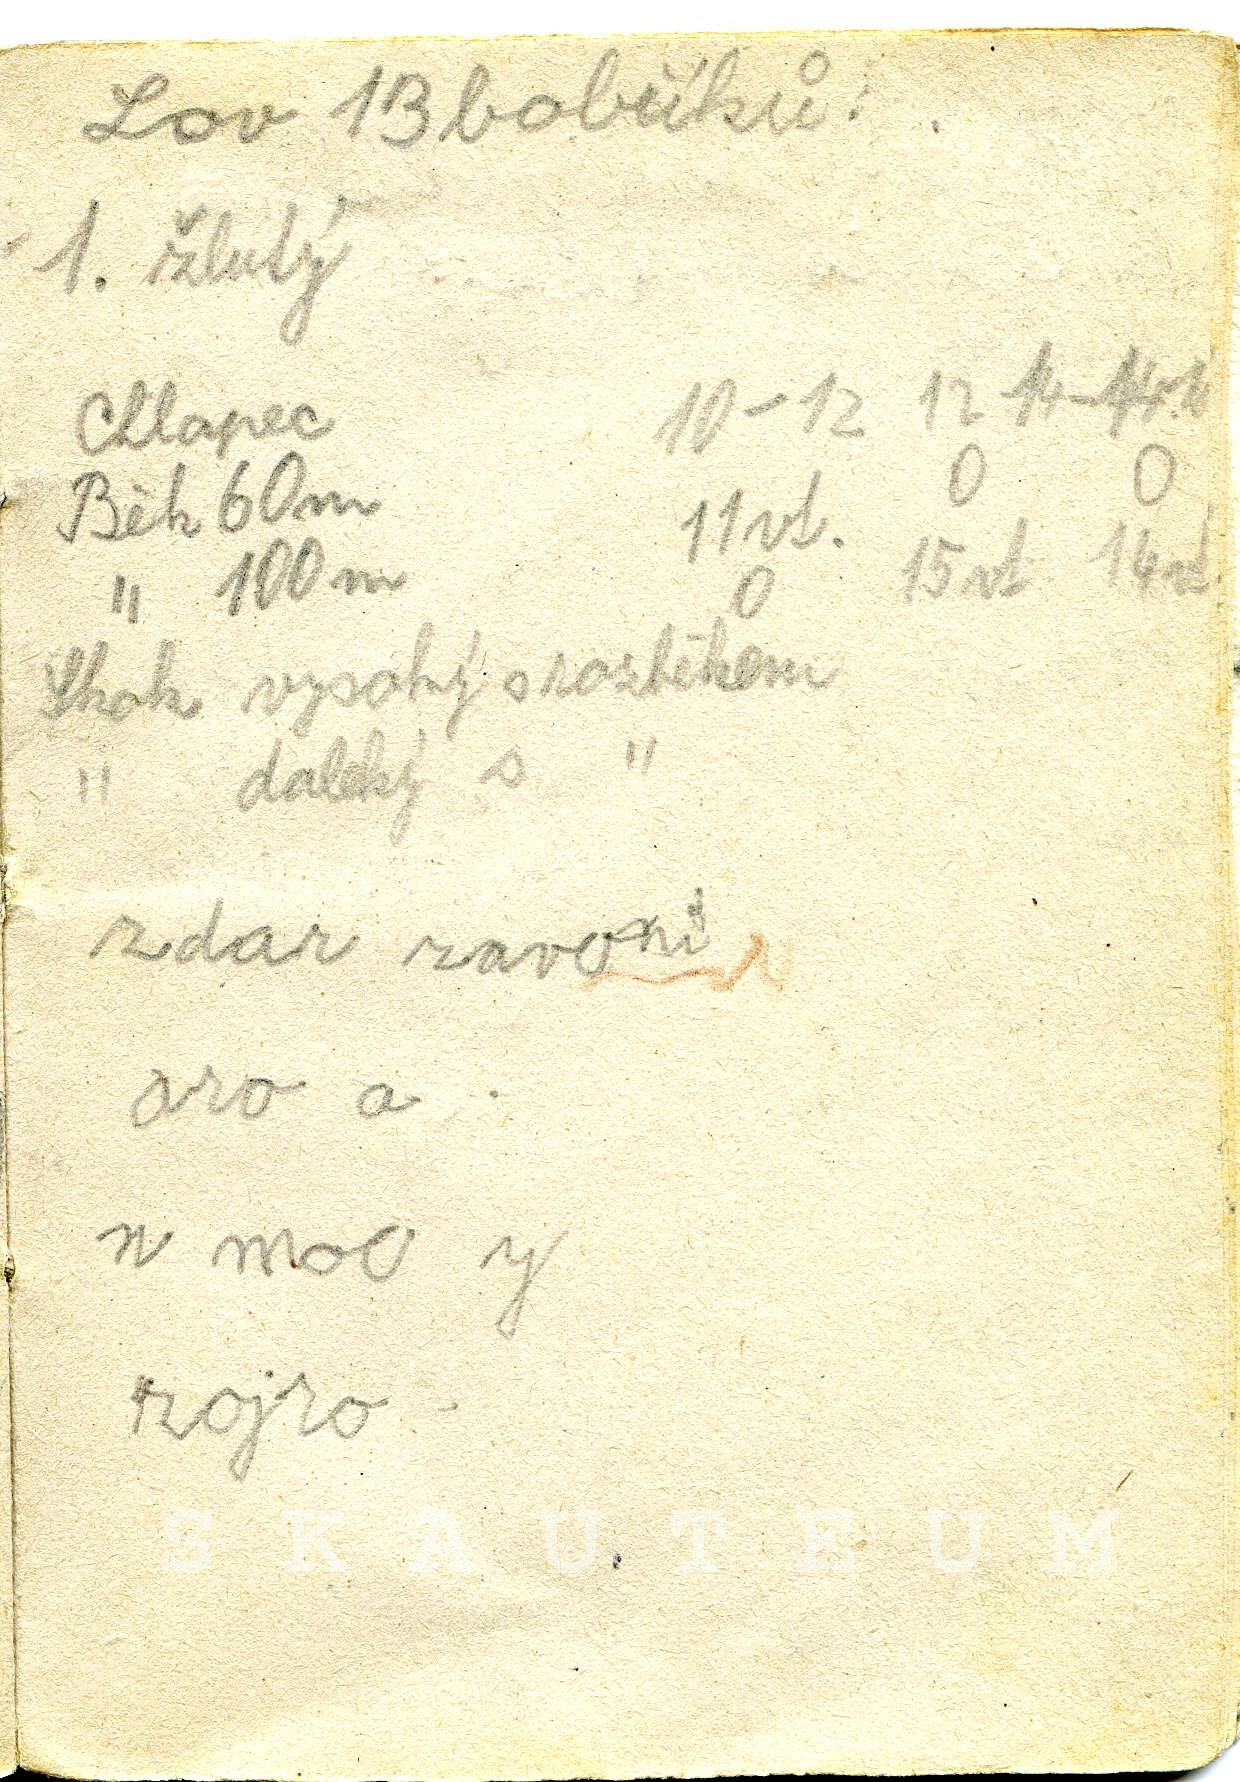 Lov 13 bobříků:
1. žlutý
Chlapec 10-12 12-14
Běh 60m 11vt. 0 0
" 100m 0 15vt 14vt.
Skok vysoký s rozběhem
" daleký s "
zdar závo
oro a
n moO y
zojzo
SKAUTEUM